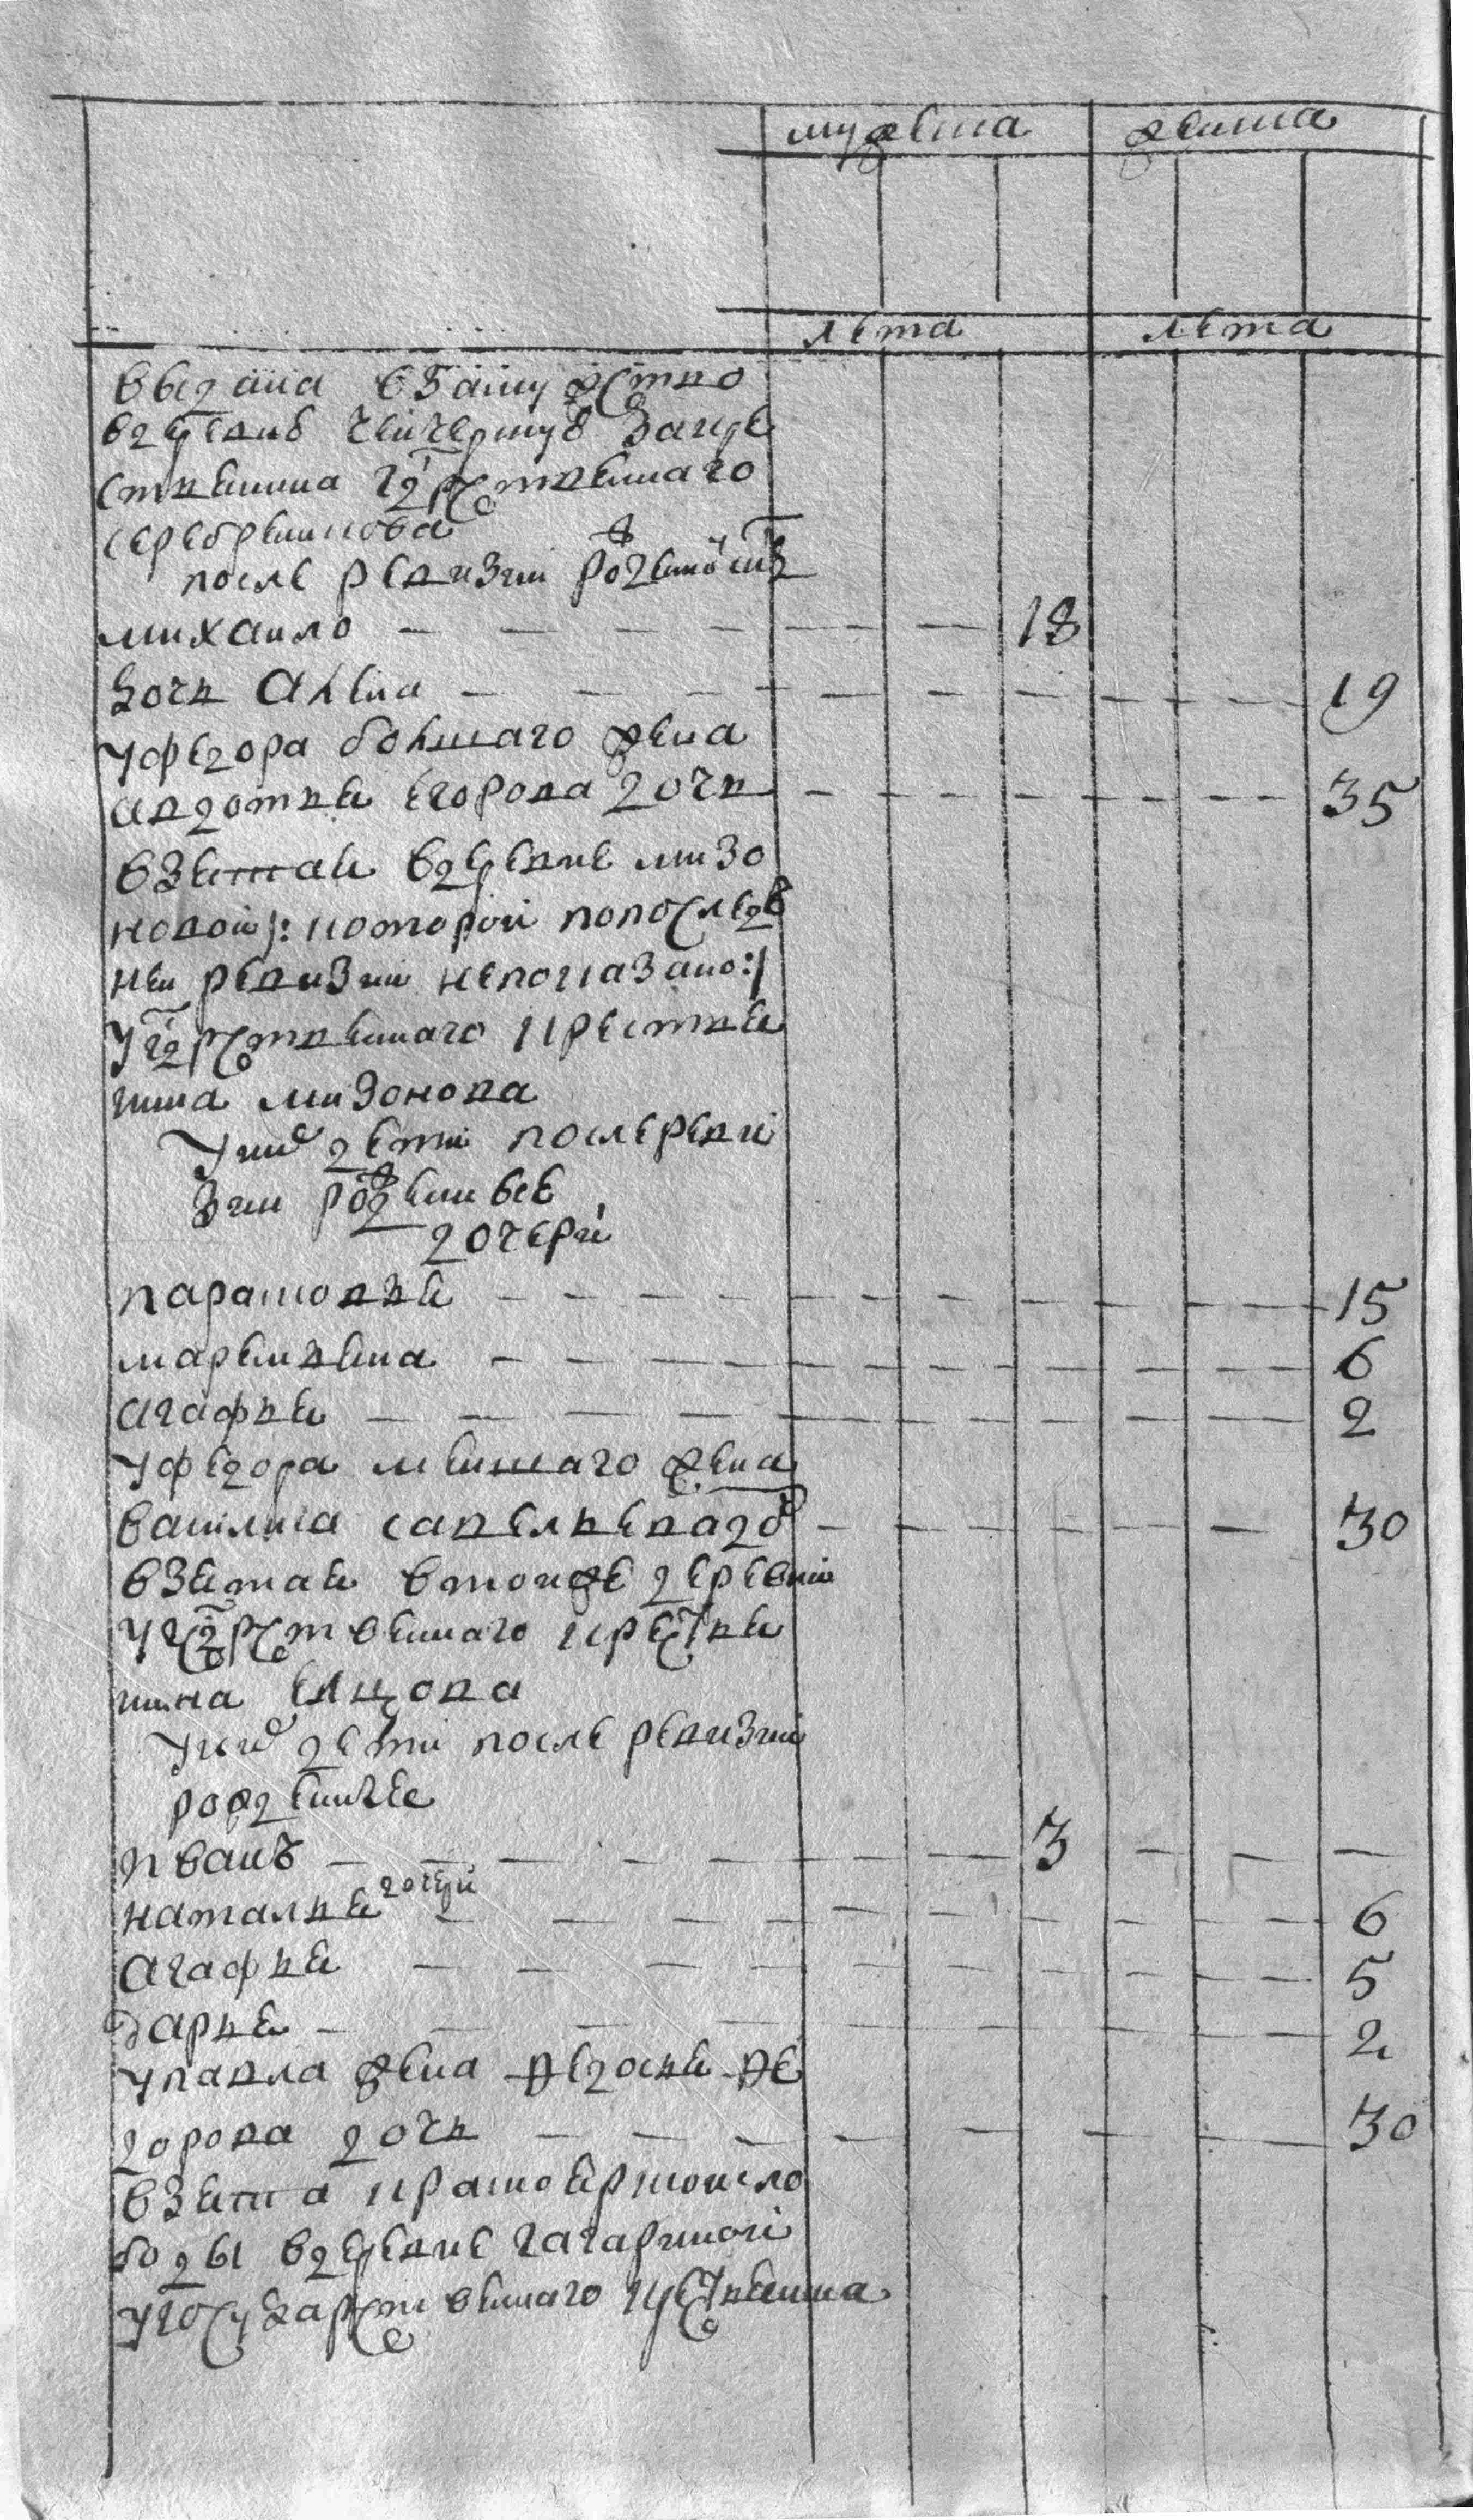 мужеска женска
лета лета
выдана взамужство
вдеревню чечершую закре
стьянина гдрственнаго
серебреникова
после ревизии рожденной
михаило — 18
дочь Анна — 19
уфедора большаго жена
авдотья егорова дочь — 35
взятая вдеревне мизо
новой /: которой попослед
ней ревизии непоказано :/
угдрственнаго крестья
нина мизонова
уних дети послереви
зии рожденные
дочери
парасковья — 15
маремьяна — 6
агафья — 2
уфедора меншаго жена
василиса савельева до — 30
взятая втойже деревни
угдрственнаго крестья
нина
уних дети после ревизии
рожденные
иванъ — 3 —
наталья дочери — 6
агафья — 5
дарья — 2
упавла жена федосья фе
дорова дочь — 30
взята красноярской сло
боды вдеревне гагариной
угосударственнаго крестьянина